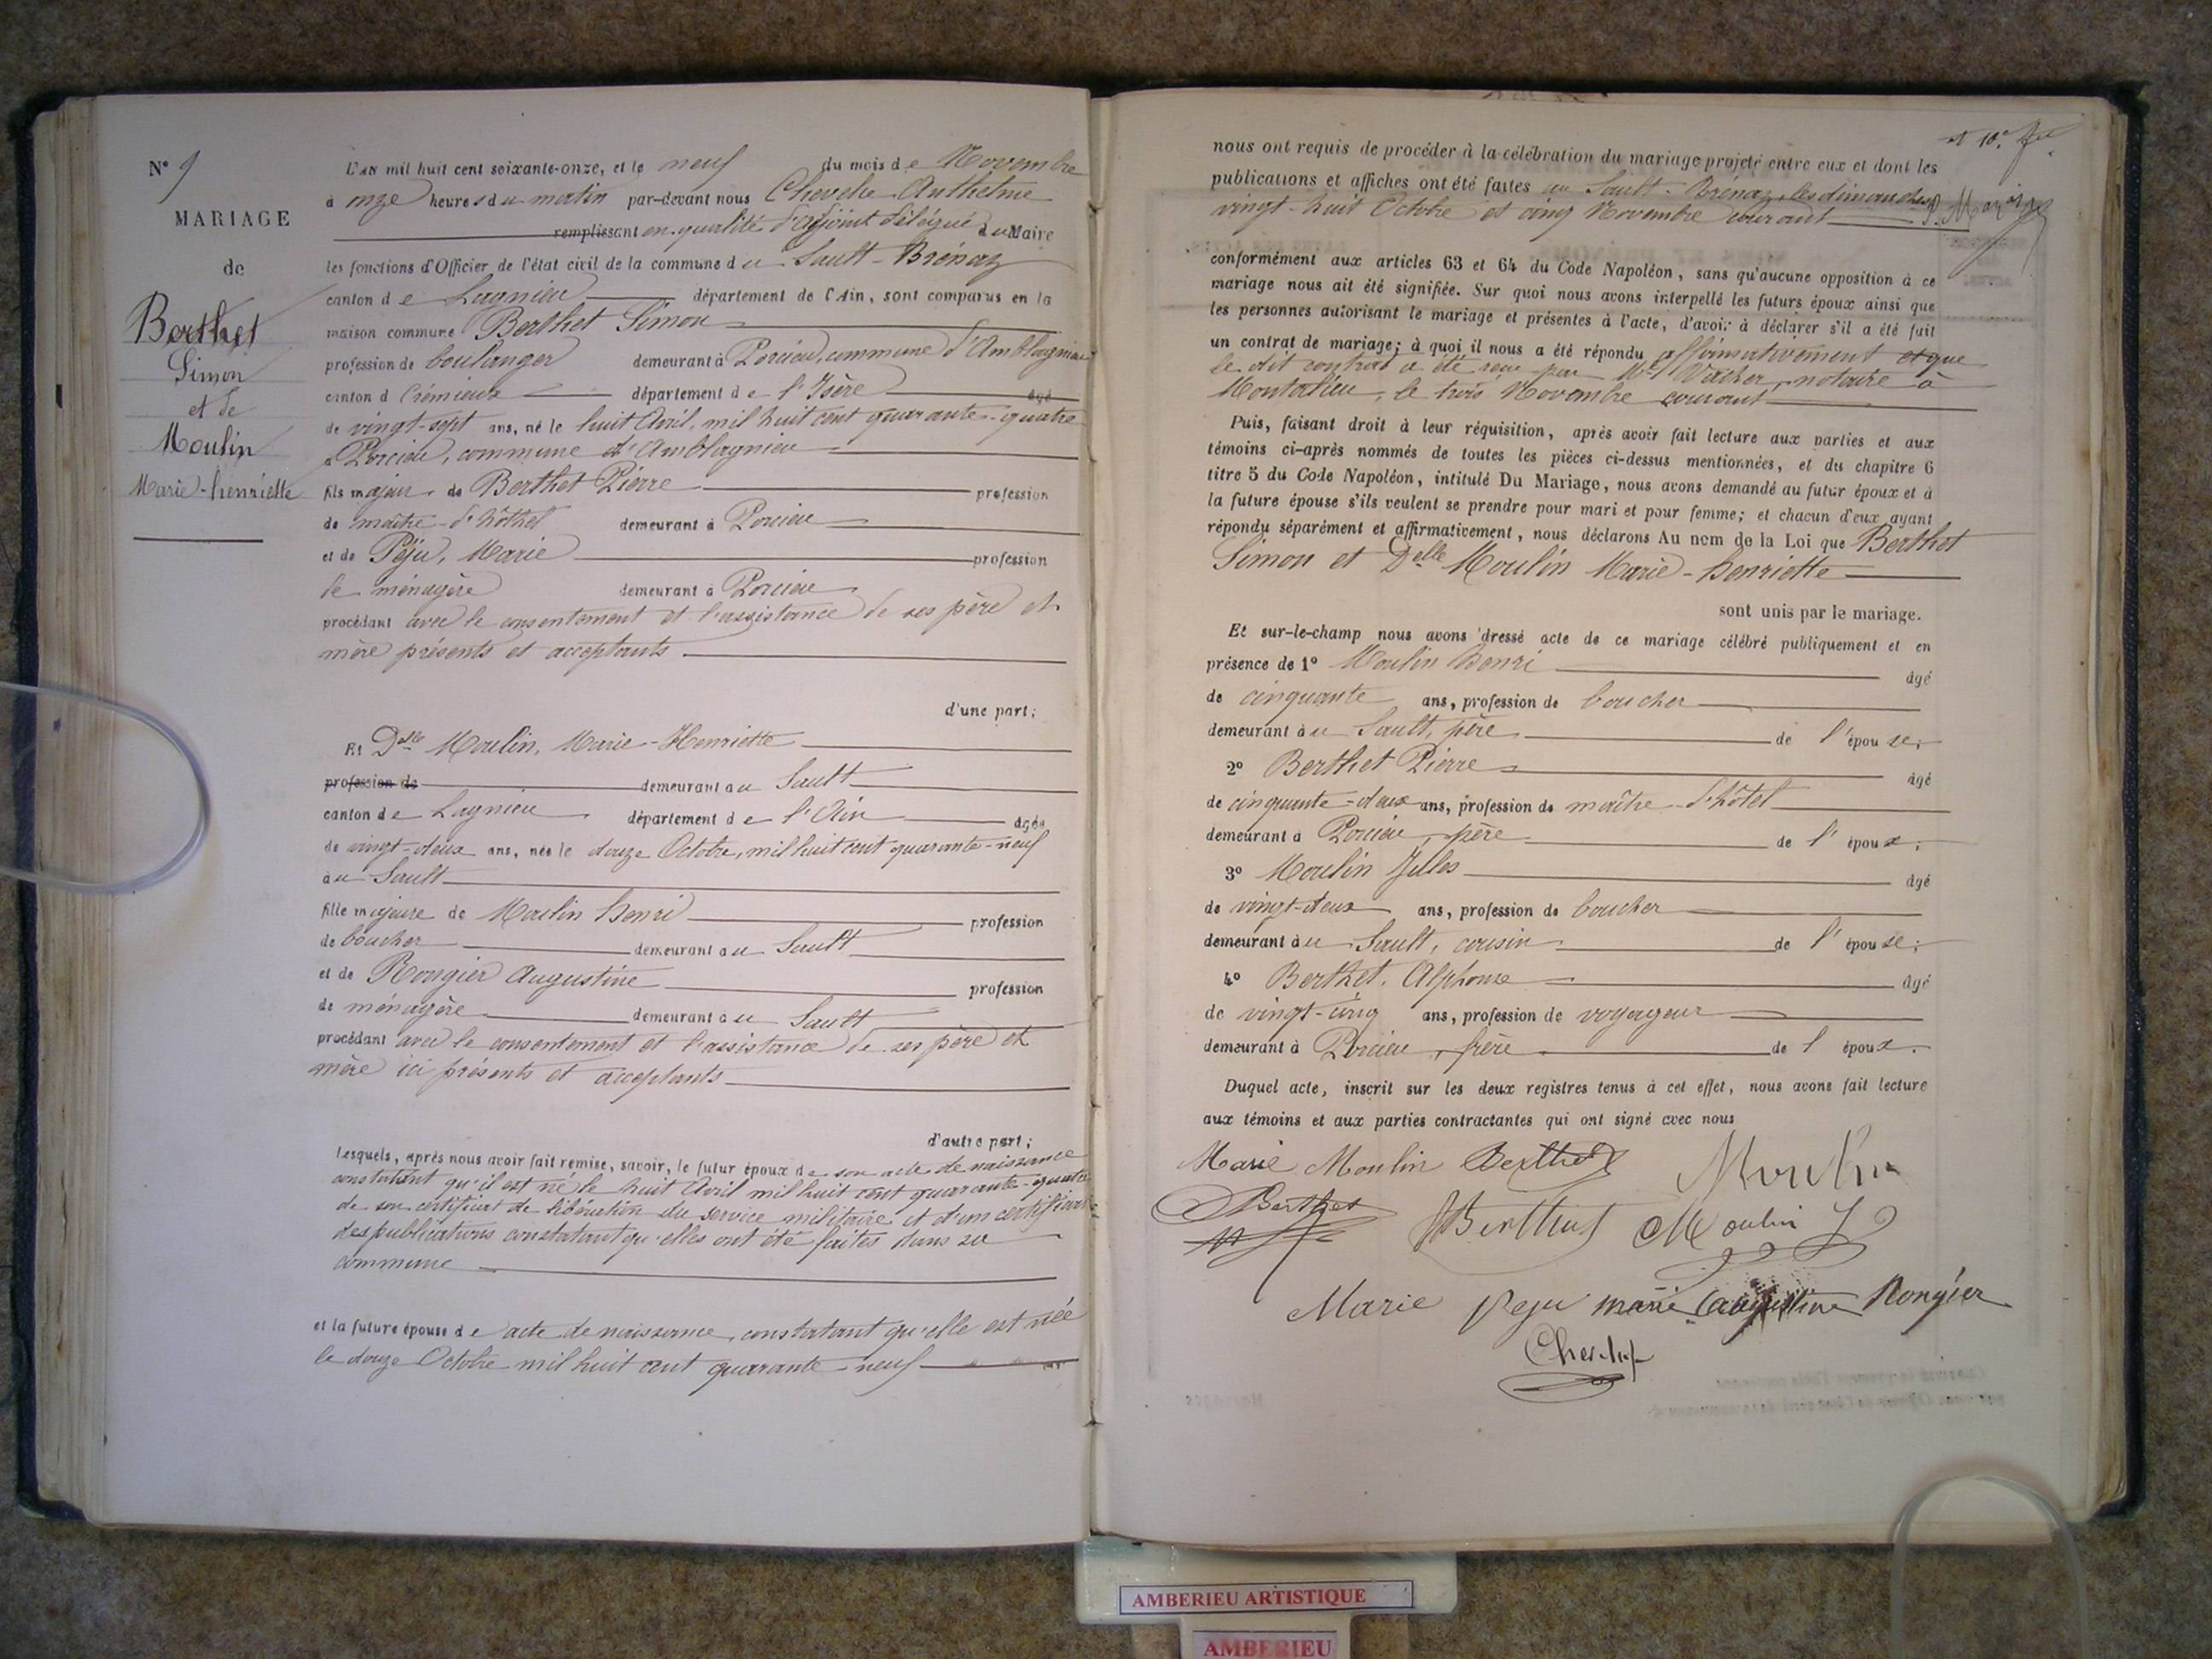 N° 9
MARIAGE
de
Berthet
Simon
et de
Moulin
Marie-henriette
L'an mil huit cent soixante-onze, et le neuf du mois de Novembre
à onze heures du matin par-devant nous Anthelme
remplissant en qualité d'adjoint délégué du Maire
les fonctions d'Officier de l'état civil de la commune du Sault-Brénaz
canton de Lagnieu département de l'Ain, sont comparus en la
maison commune Berthet Simon
profession de boulanger demeurant à Porcieu, commune d'Amblagnieu
canton d Crémieux département de l'Isère âgé
de vingt-sept ans, né le huit Avril, mil huit cent quarante-quatre
à Porcieu, commune d'Amblagnieu
fils majeur de Berthet Pierre profession
de maître-d'hôthel demeurant à Porcieu
et de Péju, Marie profession
de ménagère demeurant à Porcieu
procédant avec le consentement et l'assistance de ses père et
mère présents et acceptants
d'une part;
Et Delle Moulin, Marie-Henriette
profession de demeurant au Sault
canton de Lagnieu département de l'Ain âgée
de vingt-deux ans, née le douze Octobre, mil huit cent quarante-neuf
au Sault
fille majeure de Moulin henri profession
de boucher demeurant au Sault
et de Rongier Augustine profession
de ménagère demeurant au Sault
procédant avec le consentement et l'assistance de ses père et
mère ici présents et acceptants
d'autre part;
Lesquels, après nous avoir fait remise, savoir, le futur époux de son acte de naissance
constatant qu'il est né le huit Avril mil huit cent quarante-quatre
de son certificat de libération du service militaire et d'un certificat
des publications constatant qu'elles ont été faites dans sa
commune
et la future épouse de acte de naissance, constatant qu'elle est née
le douze Octobre mil huit cent quarante-neuf
nous ont requis de procéder à la célébration du mariage projeté entre eux et dont les
publications et affiches ont été faites au Sault-Brénaz, les dimanches
vingt-huit Octobre et cinq Novembre courant
conformément aux articles 63 et 64 du Code Napoléon, sans qu'aucune opposition à ce
mariage nous ait été signifiée. Sur quoi nous avons interpellé les futurs époux ainsi que
les personnes autorisant le mariage et présentes à l'acte, d'avoir à déclarer s'il a été fait
un contrat de mariage; à quoi il nous a été répondu affirmativement et que
le dit contrat a été reçu par Me Vacher, notaire à
Montalieu, le trois Novembre courant
Puis, faisant droit à leur réquisition, après avoir fait lecture aux parties et aux
témoins ci-après nommés de toutes les pièces ci-dessus mentionnées, et du chapitre 6
titre 5 du Code Napoléon, intitulé Du Mariage, nous avons demandé au futur époux et à
la future épouse s'ils veulent se prendre pour mari et pour femme; et chacun d'eux ayant
répondu séparément et affirmativement, nous déclarons Au nom de la Loi que Berthet
Simon et Delle Moulin Marie-henriette
sont unis par le mariage.
Et sur-le-champ nous avons dressé acte de ce mariage célébré publiquement et en
présence de 1° Moulin henri âgé
de cinquante ans, profession de boucher
demeurant au Sault, père de l'épouse;
2° Berthet Pierre âgé
de cinquante-deux ans, profession de maître-d'hôtel
demeurant à Porcieu, père de l'époux;
3° Moulin Jules âgé
de vingt-deux ans, profession de boucher
demeurant au Sault, cousin de l'épouse;
4° Berthet, Alphonse âgé
de vingt-cinq ans, profession de voyageur
demeurant à Porcieu, frère de l époux.
Duquel acte, inscrit sur les deux registres tenus à cet effet, nous avons fait lecture
aux témoins et aux parties contractantes qui ont signé avec nous
Marie Moulin Berthet Moulin
Berthet Berthet Moulin J
Marie peju marie augustine Rongier
AMBERIEU ARTISTIQUE
AMBERIEU